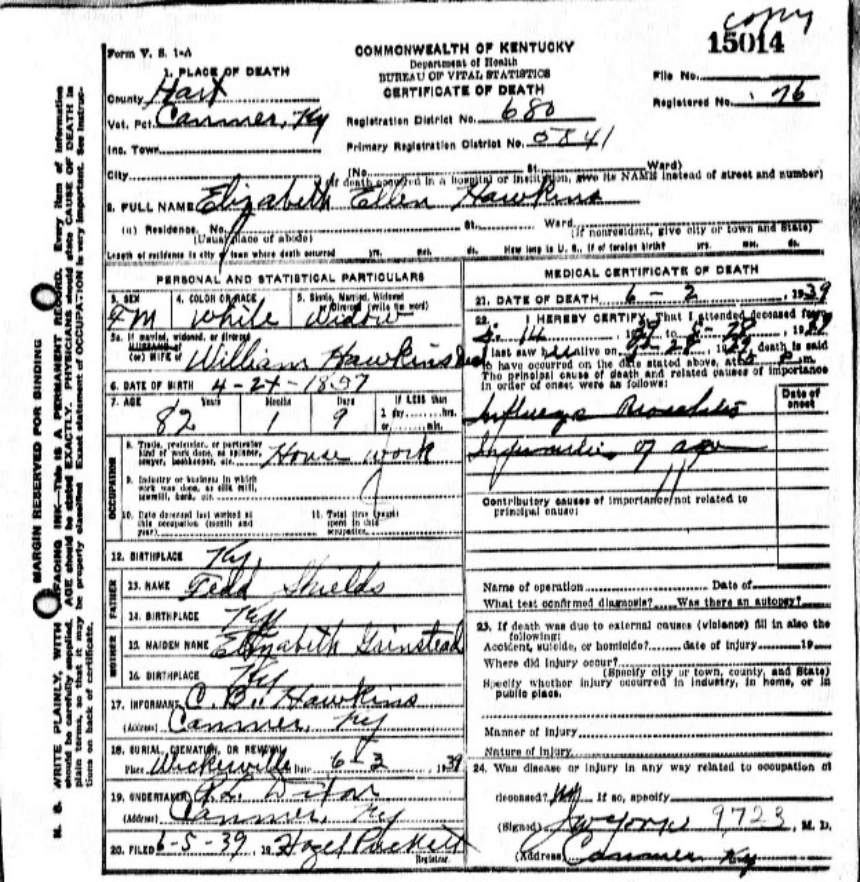 copy
15014
Form V. S. 1-A
COMMONWEALTH OF KENTUCKY
Department of Health
BUREAU OF VITAL STATISTICS
CERTIFICATE OF DEATH
File No.
Registered No. 76
1. PLACE OF DEATH
County Hart
Vot. Pct. Canmer, Ky
Registration District No. 680
Inc. Town
Primary Registration District No. 0841
City (No. St. Ward)
(If death occurred in a hospital or institution, give its NAME instead of street and number)
2. FULL NAME Elizabeth Ellen Hawkins
(a) Residence. No. St. Ward
(Usual place of abode) (If nonresident, give city or town and State)
Length of residence in city or town where death occurred yrs. mos. ds. How long in U. S., if of foreign birth? yrs. mos. ds.
PERSONAL AND STATISTICAL PARTICULARS
3. SEX 4. COLOR OR RACE 5. Single, Married, Widowed or Divorced (write the word)
FM White Widow
5a. If married, widowed, or divorced
HUSBAND of
(or) WIFE of William Hawkins
6. DATE OF BIRTH 4-24-1857
7. AGE Years Months Days If LESS than
82 1 9 1 day hrs.
or min.
OCCUPATION
8. Trade, profession, or particular
kind of work done, as spinner,
sawyer, bookkeeper, etc. House work
9. Industry or business in which
work was done, as silk mill,
sawmill, bank, etc.
10. Date deceased last worked at
this occupation (month and
year)
11. Total time (years)
spent in this
occupation
12. BIRTHPLACE Ky.
FATHER
13. NAME Fedd Shields
14. BIRTHPLACE Ky
MOTHER
15. MAIDEN NAME Elizabeth Grinstead
16. BIRTHPLACE Ky
17. INFORMANT C. B. Hawkins
(Address) Canmer, Ky
18. BURIAL, CREMATION, OR REMOVAL
Place Wickerville Date 6-3, 1939
19. UNDERTAKER
(Address) Canmer, Ky
20. FILED 6-5-39, 19 Hazel Puckett
Registrar.
MEDICAL CERTIFICATE OF DEATH
21. DATE OF DEATH 6-2, 1939
22. I HEREBY CERTIFY, That I attended deceased from
14, to 5-28, 19
last saw her alive on death is said
to have occurred on the date stated above, at m.
The principal cause of death and related causes of importance
in order of onset were as follows:
Date of
onset
Influenza Bronchitis
Infirmities of age
Contributory causes of importance not related to
principal cause:
Name of operation Date of
What test confirmed diagnosis? Was there an autopsy?
23. If death was due to external causes (violence) fill in also the
following:
Accident, suicide, or homicide? date of injury 19
Where did injury occur?
(Specify city or town, county, and State)
Specify whether injury occurred in industry, in home, or in
public place.
Manner of injury
Nature of injury
24. Was disease or injury in any way related to occupation of
deceased? No If so, specify
(Signed) 9723, M. D.
(Address) Canmer Ky
MARGIN RESERVED FOR BINDING
N. B. WRITE PLAINLY, WITH UNFADING INK—This IS A PERMANENT RECORD. Every item of information
should be carefully supplied. AGE should be stated EXACTLY. PHYSICIANS should state CAUSE OF DEATH in
plain terms, so that it may be properly classified. Exact statement of OCCUPATION is very important. See instruc-
tions on back of certificate.